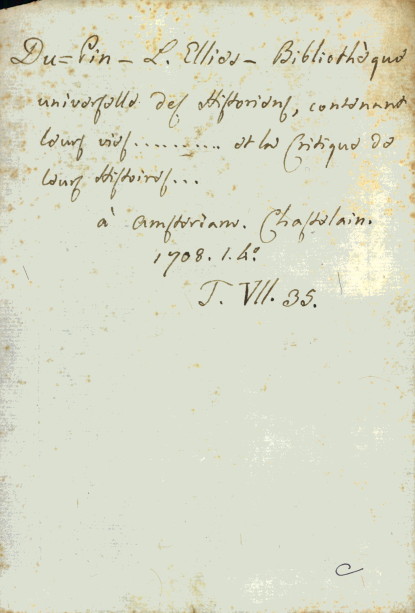 Du=Pin - L. Ellies - Bibliothèque
universelle des Historiens, contenant
leurs vies.......... et la Critique de
leurs Histoires...
à Amsterdam. Chastelain.
1708. 1. 4.º
T. VII. 35.
C